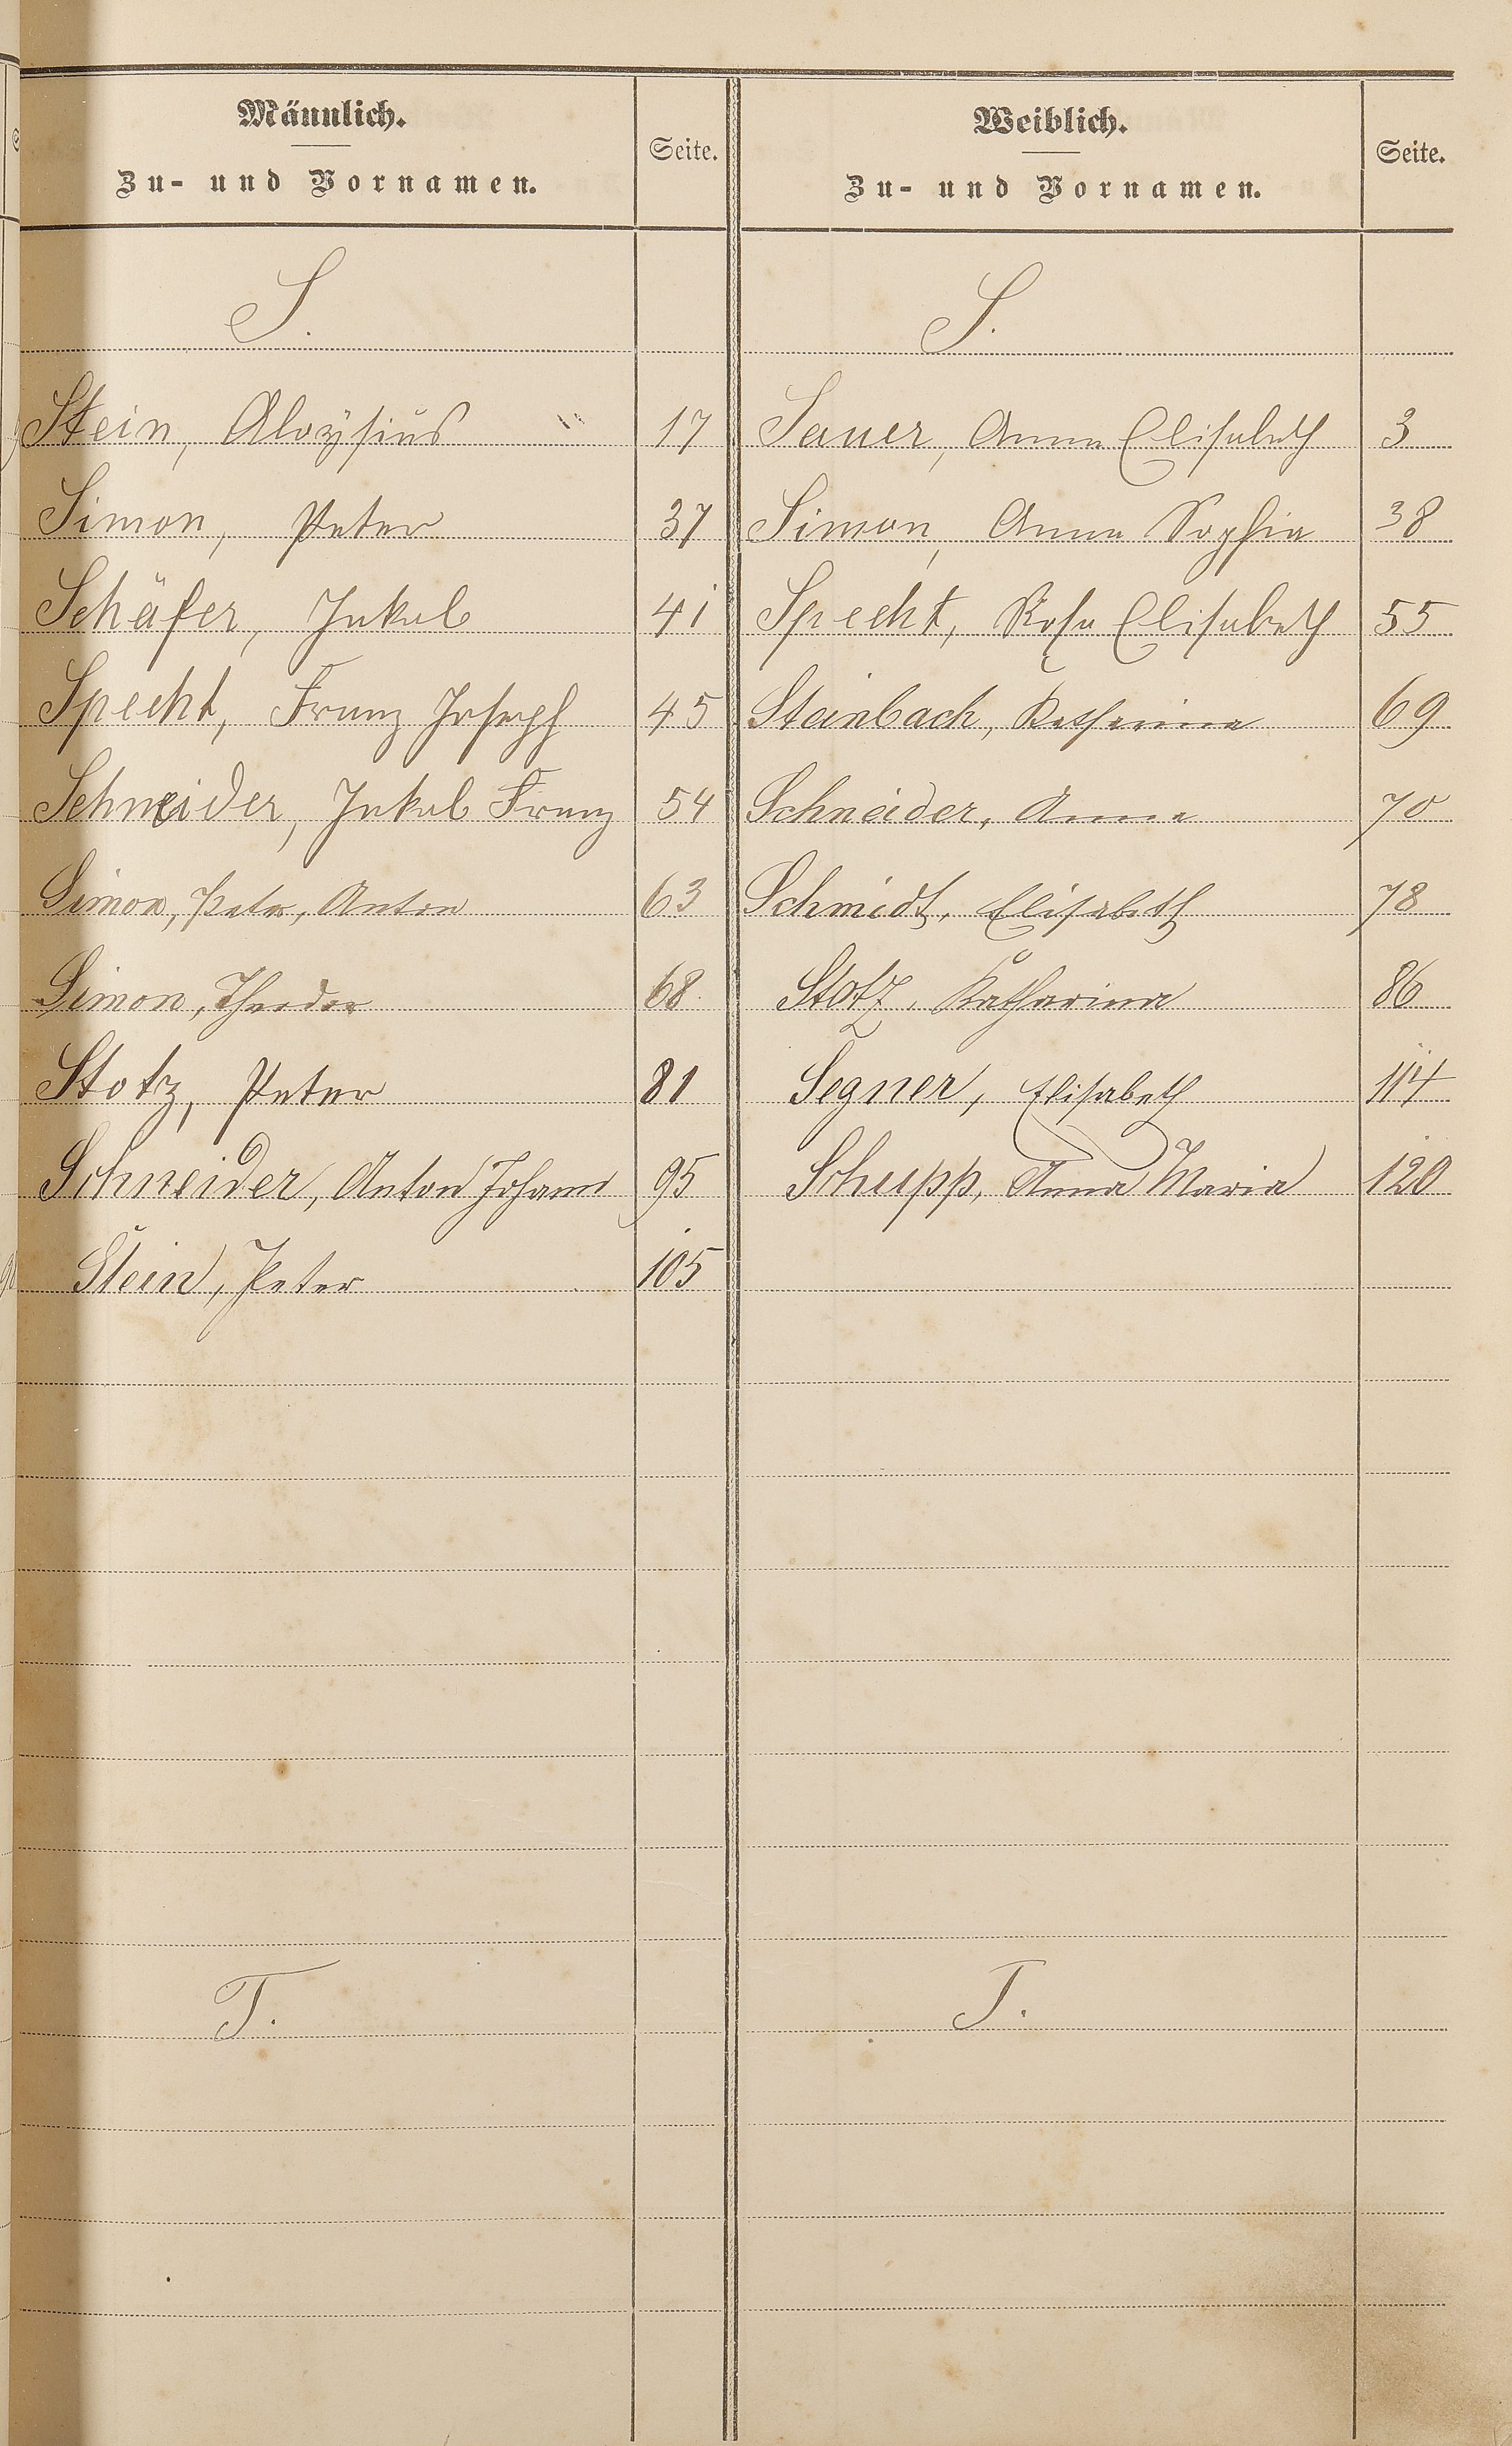 Männlich.
Zu- und Vornamen.
Seite.
Weiblich.
Zu- und Vornamen.
Seite.
S.
S.
Stein, Aloÿsius 17
Sauer, Anna Elisabeth 3
Simon, Peter 37
Simon, Anna Sophia 38
Schäfer, Jakob 41
Specht, Rosa Elisabeth 55
Specht, Franz Joseph 45
Steinbach, Katharina 69
Schneider, Jakob Franz 54
Schneider, Anna 70
Simon, Peter, Anton 63
Schmidt, Elisabeth 78
Simon, Theodor 68
Stotz, Katharina 86
Stotz, Peter 81
Segner, Elisabeth 114
Schneider, Anton Johann 95
Schupp, Anna Maria 120
Stein, Peter 105
T.
T.